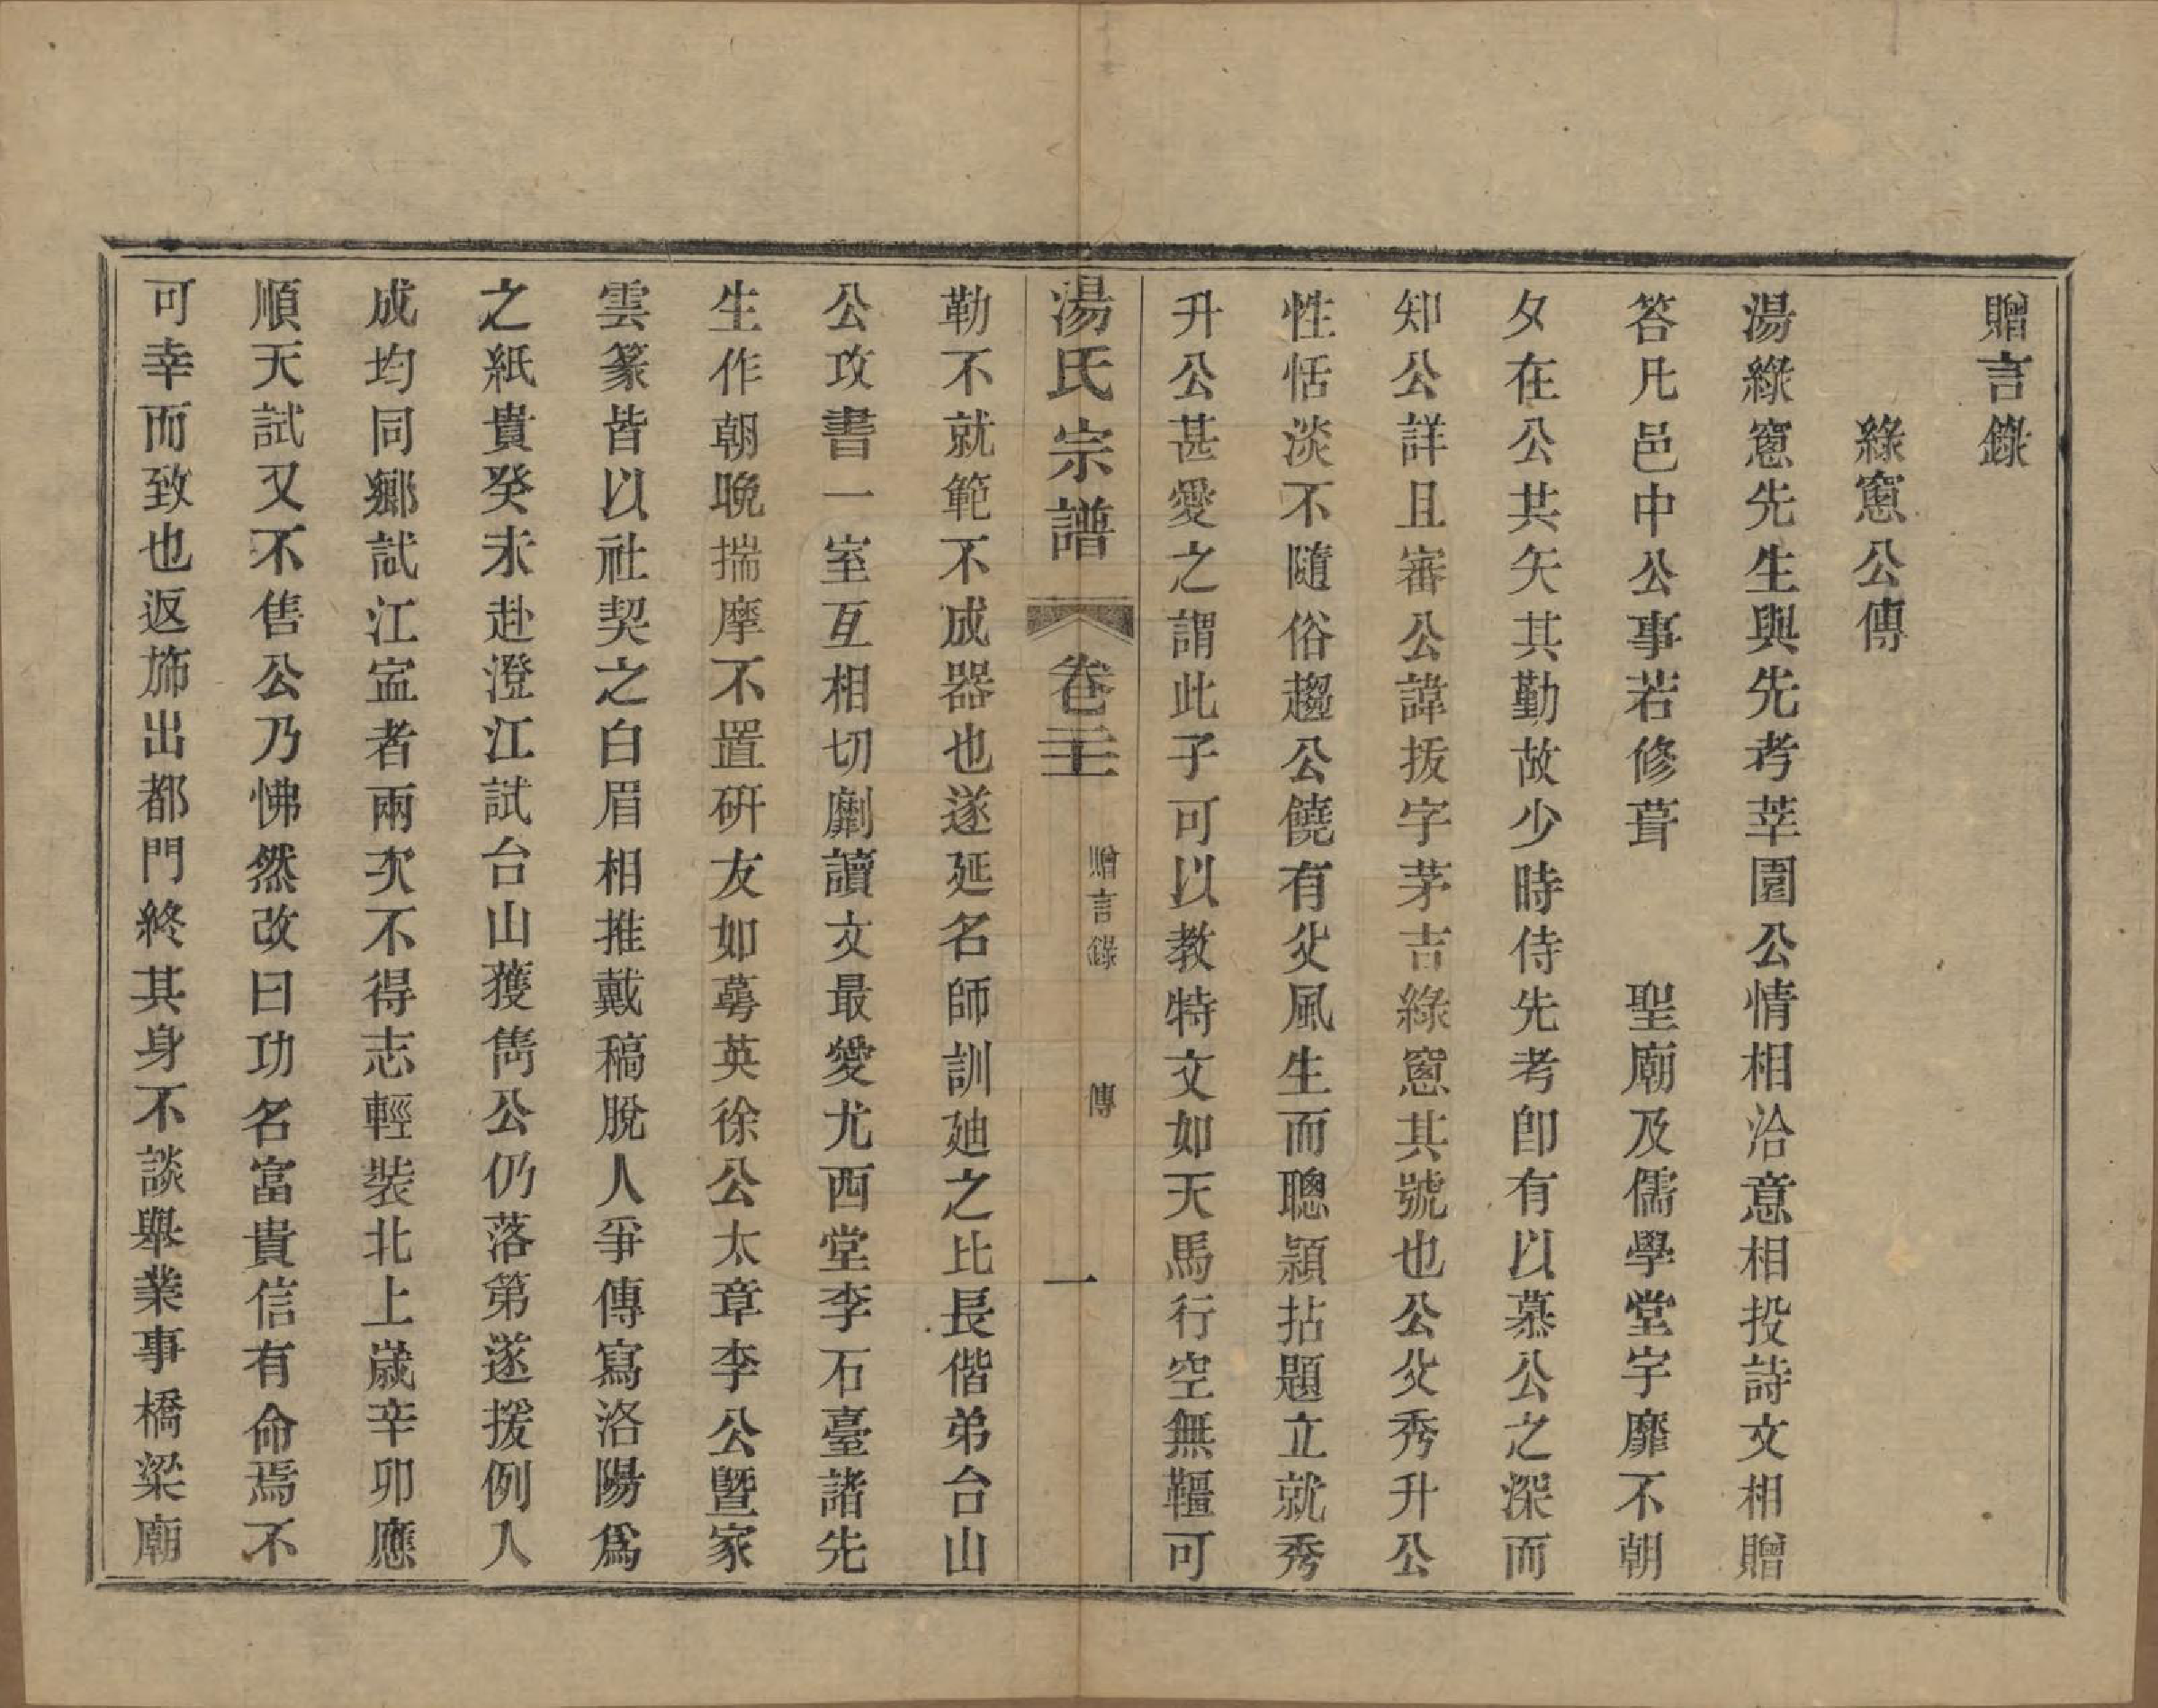 贈言錄
綠窻公傳
湯綠窻先生與先考莘園公情相洽意相投詩文相贈
答凡邑中公事若修葺　聖廟及儒學堂宇靡不朝
夕在公共矢其勤故少時侍先考卽有以慕公之深而
知公詳且審公諱拔字茅吉綠窻其號也公父秀升公
性恬淡不隨俗趨公饒有父風生而聰穎拈題立就秀
升公甚愛之謂此子可以教特文如天馬行空無韁可
湯氏宗譜　卷二十二　贈言錄　傳　一
勒不就範不成器也遂延名師訓廸之比長偕弟台山
公攻書一室互相切劘讀文最愛尤西堂李石臺諸先
生作朝晚揣摩不置硏友如蕚英徐公太章李公曁家
雲篆皆以社契之白眉相推戴稿脫人爭傳寫洛陽爲
之紙貴癸未赴澄江試台山獲雋公仍落第遂援例入
成均同鄉試江寍者兩次不得志輕裝北上歲辛卯應
順天試又不售公乃怫然改曰功名富貴信有命焉不
可幸而致也返斾出都門終其身不談舉業事橋梁廟